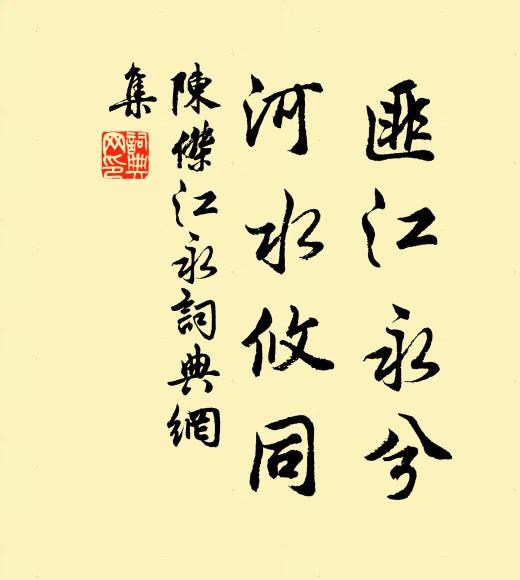 匪江永兮
河水攸同
陳傑江永詞典網
集
詞典網印